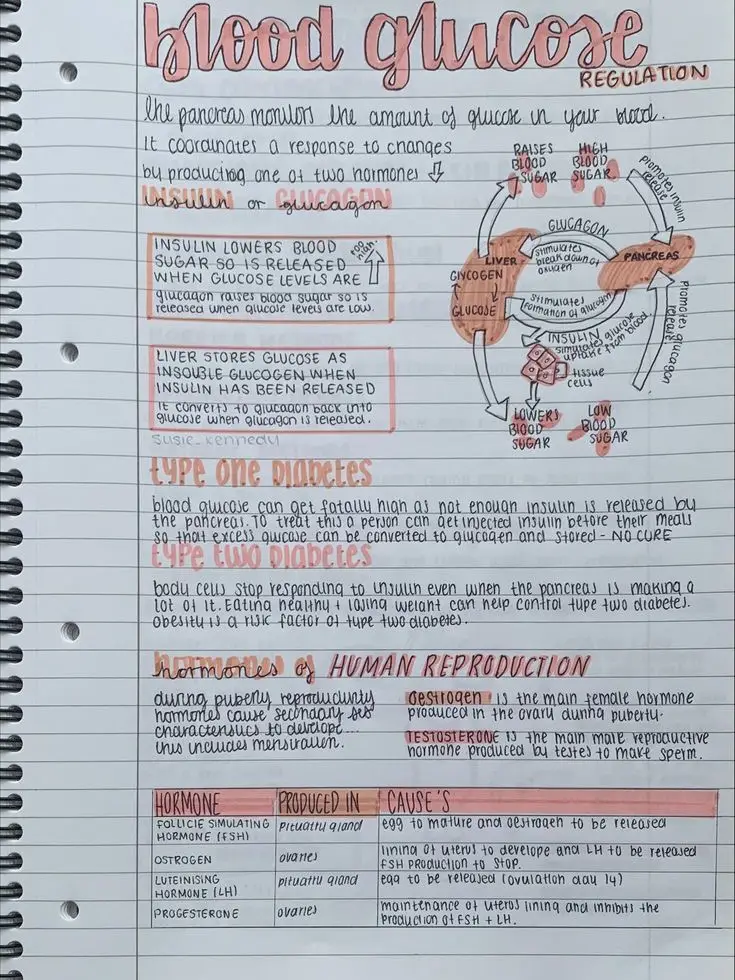 blood glucose
REGULATION
the pancreas monitors the amount of glucose in your blood.
It coordinates a response to changes
by producting one of two hormones
insulin or glucagon
INSULIN LOWERS BLOOD
SUGAR SO IS RELEASED
WHEN GLUCOSE LEVELS ARE
too high
glucagon raises blood sugar so is
released when glucose levels are low.
LIVER STORES GLUCOSE AS
INSOUBLE GLUCOGEN WHEN
INSULIN HAS BEEN RELEASED
It converts to glucagon back into
glucose when glucagon is released.
susie_kennedy
RAISES
BLOOD
SUGAR
HIGH
BLOOD
SUGAR
promotes insulin
release
GLUCAGON
stimulates
breakdown of
LIVER
GLYCOGEN
GLUCOSE
PANCREAS
stimulates
formation of glucogen
INSULIN
simulates glucose
uptake from blood.
tissue
cells
Promotes glucagon
release
LOWERS
BLOOD
SUGAR
LOW
BLOOD
SUGAR
type one diabetes
blood glucose can get fatally high as not enough insulin is released by
the pancreas. To treat this a person can get injected insulin before their meals
so that excess glucose can be converted to glycogen and stored - NO CURE
type two diabetes
body cells stop responding to insulin even when the pancreas is making a
lot of it. Eating healthy + losing weight can help control type two diabetes.
obesity is a risk factor of type two diabetes.
hormones of HUMAN REPRODUCTION
during puberty reproductivity
hormones cause secondary sex
characteristics to develope...
this includes menstruation.
oestrogen is the main female hormone
produced in the ovary during puberty.
TESTOSTERONE is the main male reproductive
hormone produced by testes to make sperm.
HORMONE PRODUCED IN CAUSE'S
FOLLICIE SIMULATING
HORMONE (FSH)
pituatry gland
egg to mature and oestrogen to be released
OSTROGEN
ovaries
lining of uterus to develope and LH to be released
FSH PRODUCTION TO STOP.
LUTEINISING
HORMONE (LH)
pituatry gland
egg to be released (ovulation day 14)
PROGESTERONE
ovaries
maintenance of uterus lining and inhibits the
production of FSH + LH.